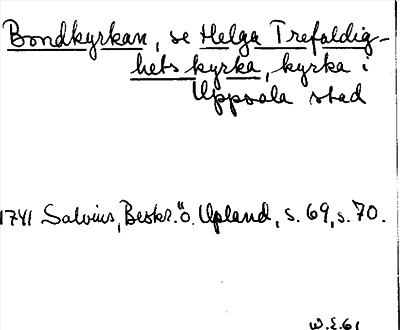 Bondkyrkan, se Helga Trefaldig-
hets kyrka, kyrka i
Uppsala stad
1741 Salvius, Beskr. ö. Upland, s. 69, s. 70.
W.E.61